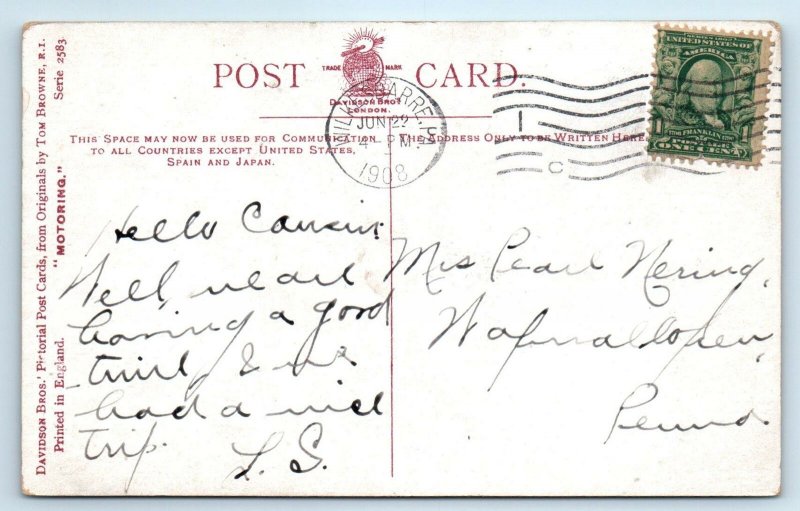 DAVIDSON BROS.' Pictorial Post Cards, from Originals by TOM BROWNE, R.I.
Printed in England. "MOTORING." Serie 2583.
POST CARD.
TRADE MARK
DAVIDSON BROS.
LONDON.
THIS SPACE MAY NOW BE USED FOR COMMUNICATION
TO ALL COUNTRIES EXCEPT UNITED STATES,
SPAIN AND JAPAN.
THE ADDRESS ONLY TO BE WRITTEN HERE
WILKES-BARRE, PA
JUN 22
4 - M
1908
1
C
UNITED STATES OF
AMERICA
FRANKLIN
POSTAGE
ONE CENT
Hello Cousin:
Well, we are
having a good
time, & we
had a nice
trip.
L. S.
Mis Pearl Nering,
Wapwallopen,
Penna.